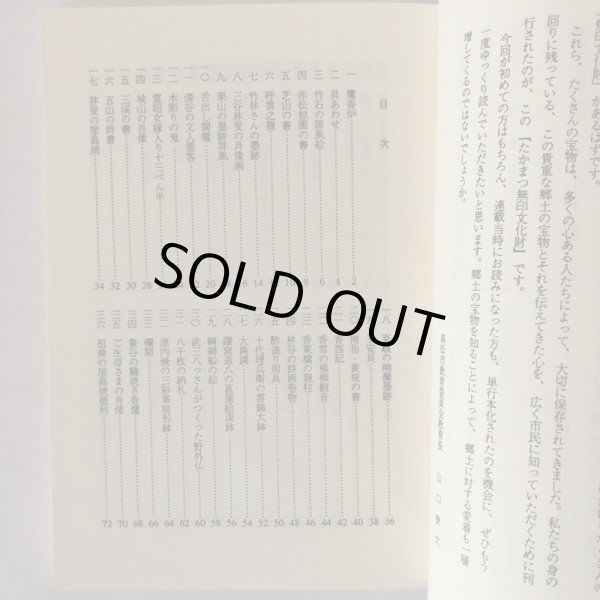 これら、たくさんの宝物は、多くの心ある人たちによって、大切に保存されてきました。私たちの身の
回りに残っている、この貴重な郷土の宝物とそれを伝えてきた心を、広く市民に知っていただくために刊
行されたのが、この『たかまつ無印文化財』です。
今回が初めての方はもちろん、連載当時にお読みになった方も、単行本化されたのを機会に、ぜひもう
一度ゆっくり読んでいただきたいと思います。郷土の宝物を知ることによって、郷土に対する愛着も一階
増してくるのではないでしょうか。
高松市教育委員会教育長 山口
目次
一 鷹香炉 2
二 貝あわせ 4
三 竹石の屏風絵 6
四 赤松椋園の書 8
五 芝山の書 10
六 呼雲之龍
七 竹林さんの墨跡 14
八 三谷林叟の肖像画
九 栗山の墨跡屏風
一〇 舌出し閻魔 20
一一 漆谷の文人墨客
一二 木彫りの鬼
一三 霊柩女嫁入り十三ぺん半
一四 城山の肖像 28
一五 三渓の書 30
一六 五山の詩書 32
一七 林叟の屋島焼 34
一八 の幽蘭墨跡 36
38
黄坡の書 40
香西記 42
香雪の楊柳観音 44
香東橋の親柱 46
二四 林谷の詩画巻物 48
二五 酢造り用具 50
二六 十代理兵衛の雲錦大鉢 52
二七 大禹謨 54
二八 讃窯道八の菖蒲絵深鉢 56
二九 鯛網船の絵 58
三〇 武三八っさんがつくった野外仏 60
三一 八千枚の納札 62
三二 源内焼の三彩軍扇形鉢 64
三三 欄間 66
三四 象谷の籬焼き香炉 68
三五 ご生母さまの肖像 70
三六 狙舞の屋島焼徳利 72
SOLD OUT